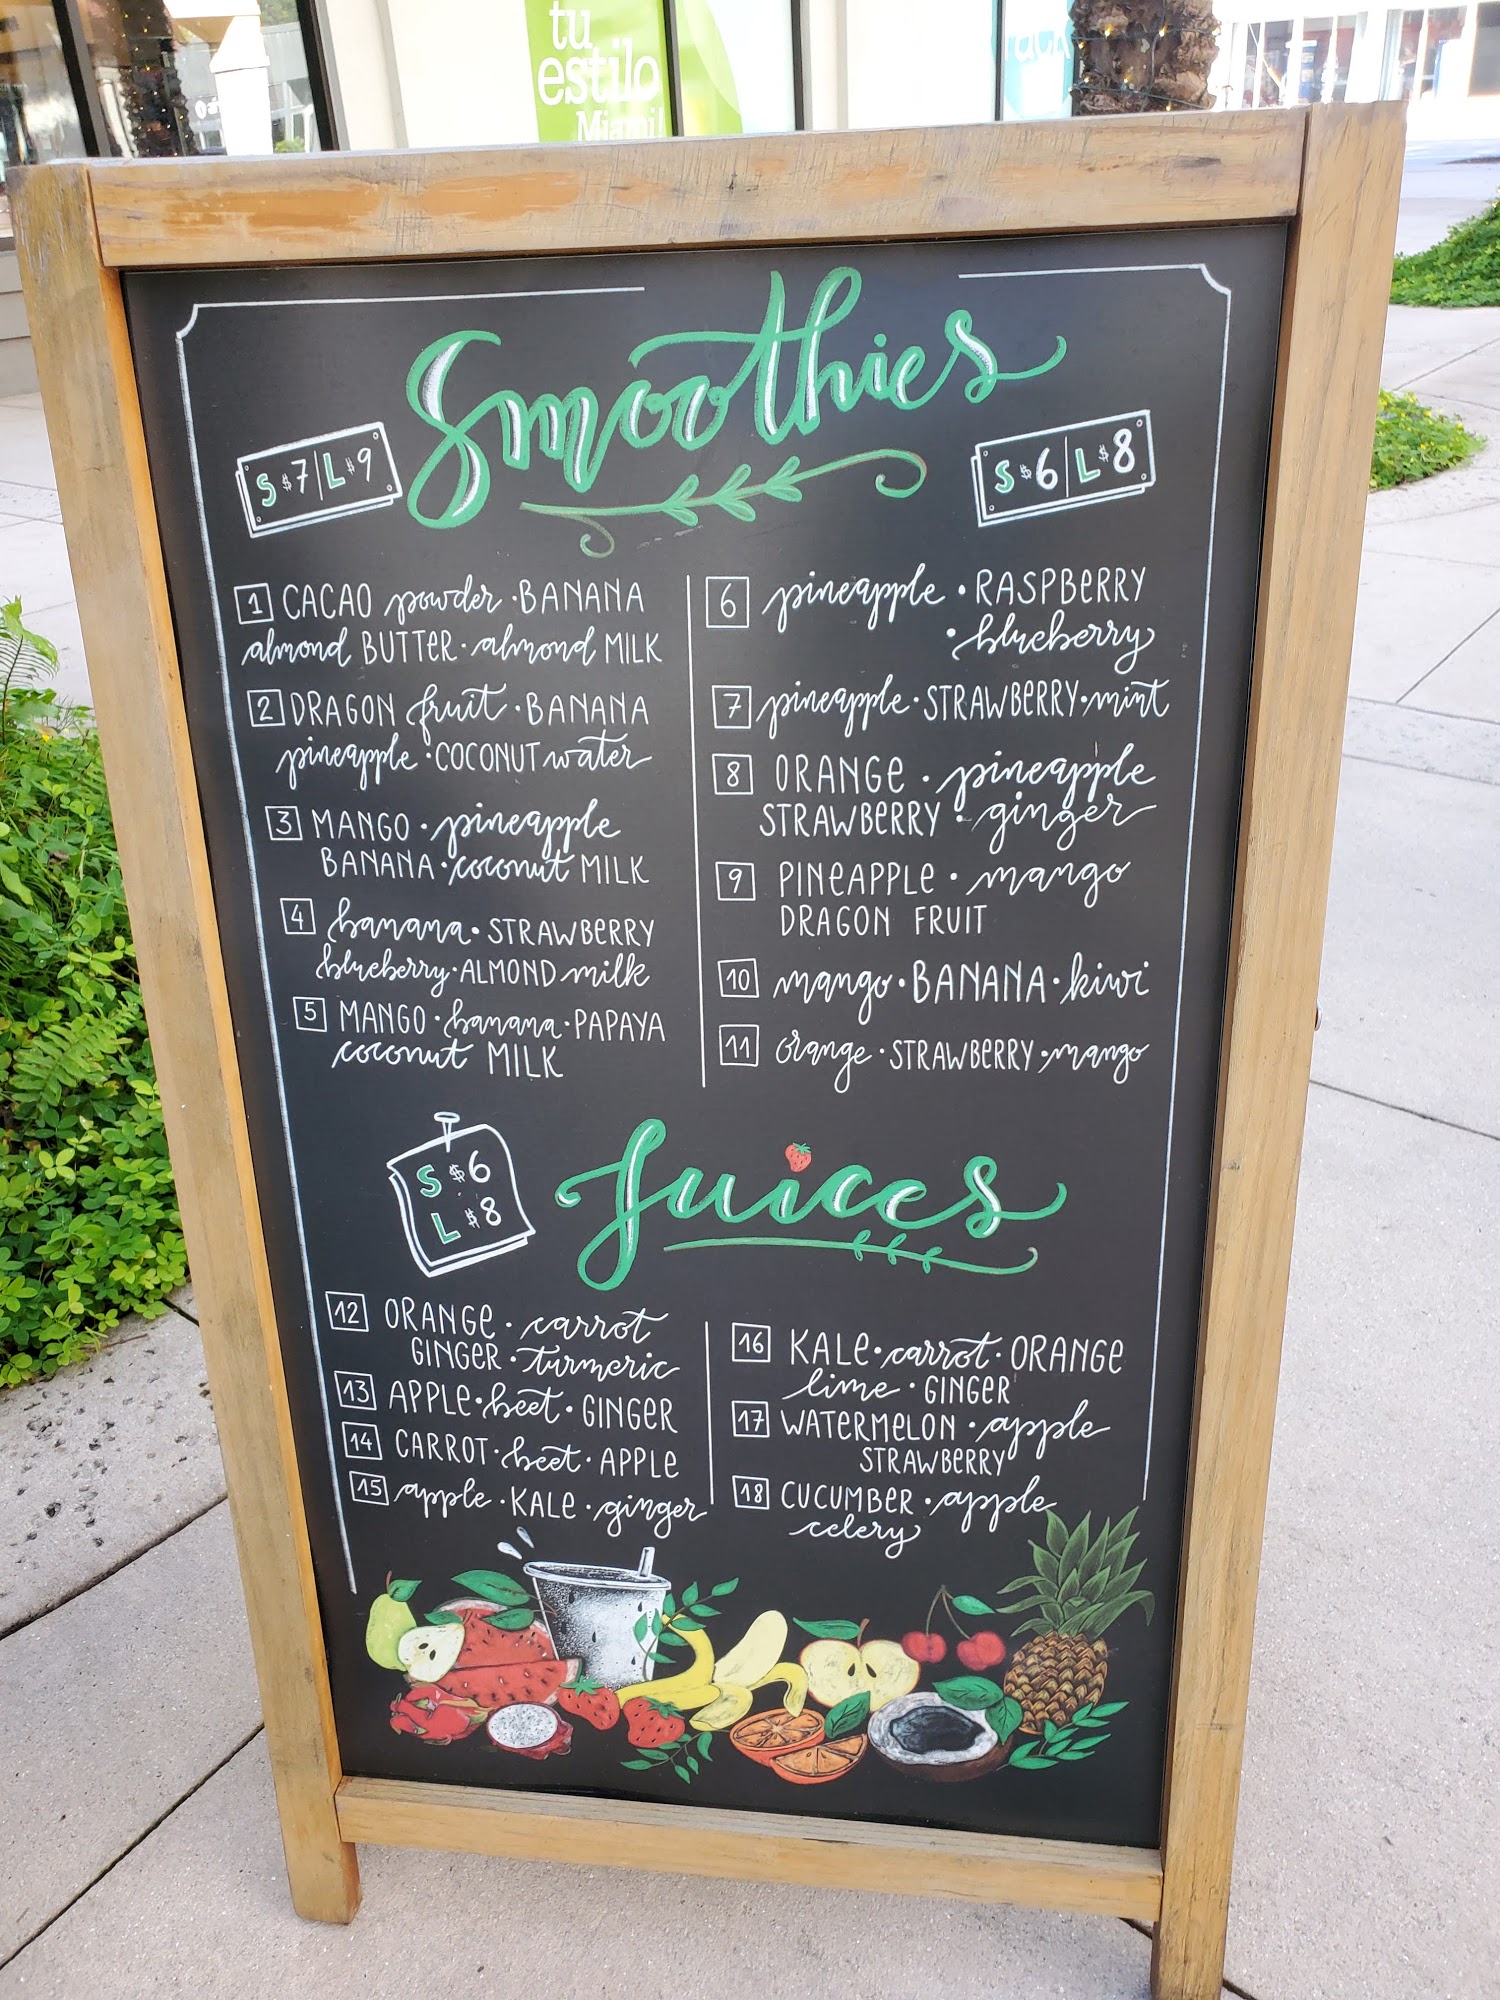 tu
estilo
Miami!
Smoothies
S $7 | L $9
S $6 | L $8
1 CACAO powder · BANANA
almond BUTTER · almond MILK
2 DRAGON fruit · BANANA
pineapple · COCONUT water
3 MANGO · pineapple
BANANA · coconut MILK
4 banana · STRAWBERRY
blueberry · ALMOND milk
5 MANGO · banana · PAPAYA
coconut MILK
6 pineapple · RASPBERRY
· blueberry
7 pineapple · STRAWBERRY · mint
8 ORANGE · pineapple
STRAWBERRY · ginger
9 PINEAPPLE · mango
DRAGON FRUIT
10 mango · BANANA · kiwi
11 orange · STRAWBERRY · mango
Juices
S $6
L $8
12 ORANGE · carrot
GINGER · turmeric
13 APPLE · beet · GINGER
14 CARROT · beet · APPLE
15 apple · KALE · ginger
16 KALE · carrot · ORANGE
lime · GINGER
17 WATERMELON · apple
STRAWBERRY
18 CUCUMBER · apple
celery